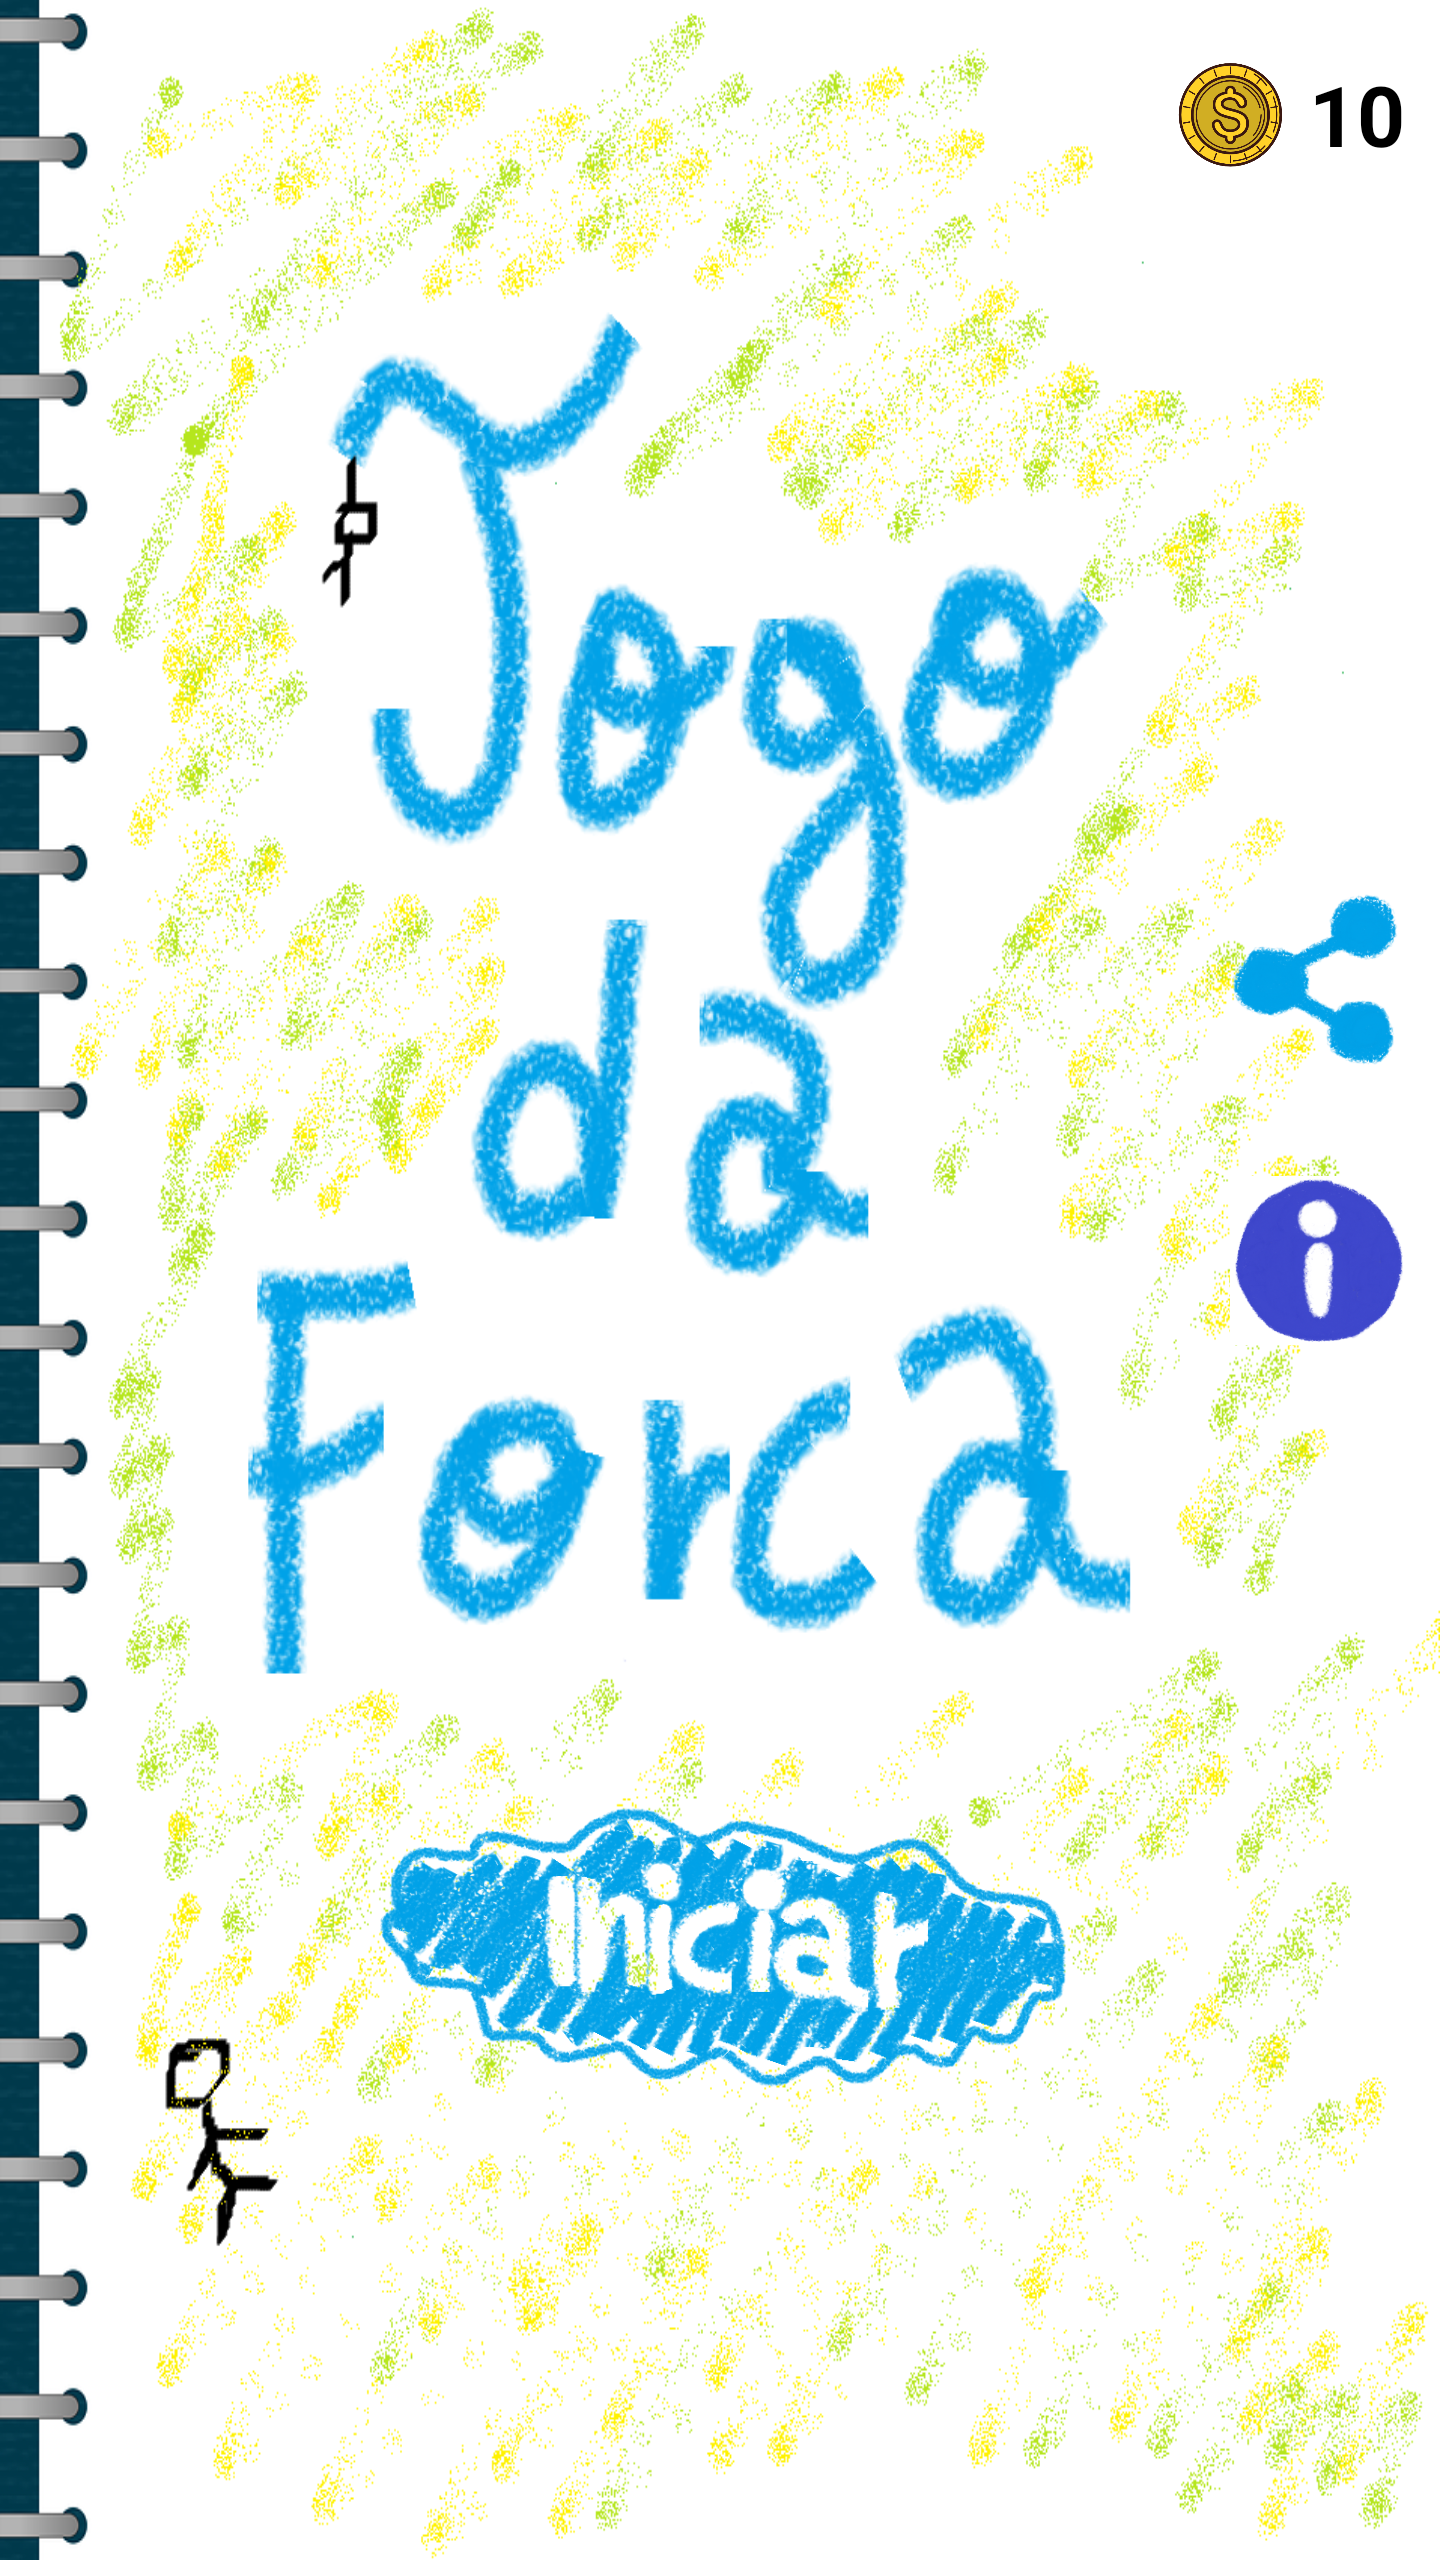 $ 10
Jogo
da
Forca
i
Iniciar